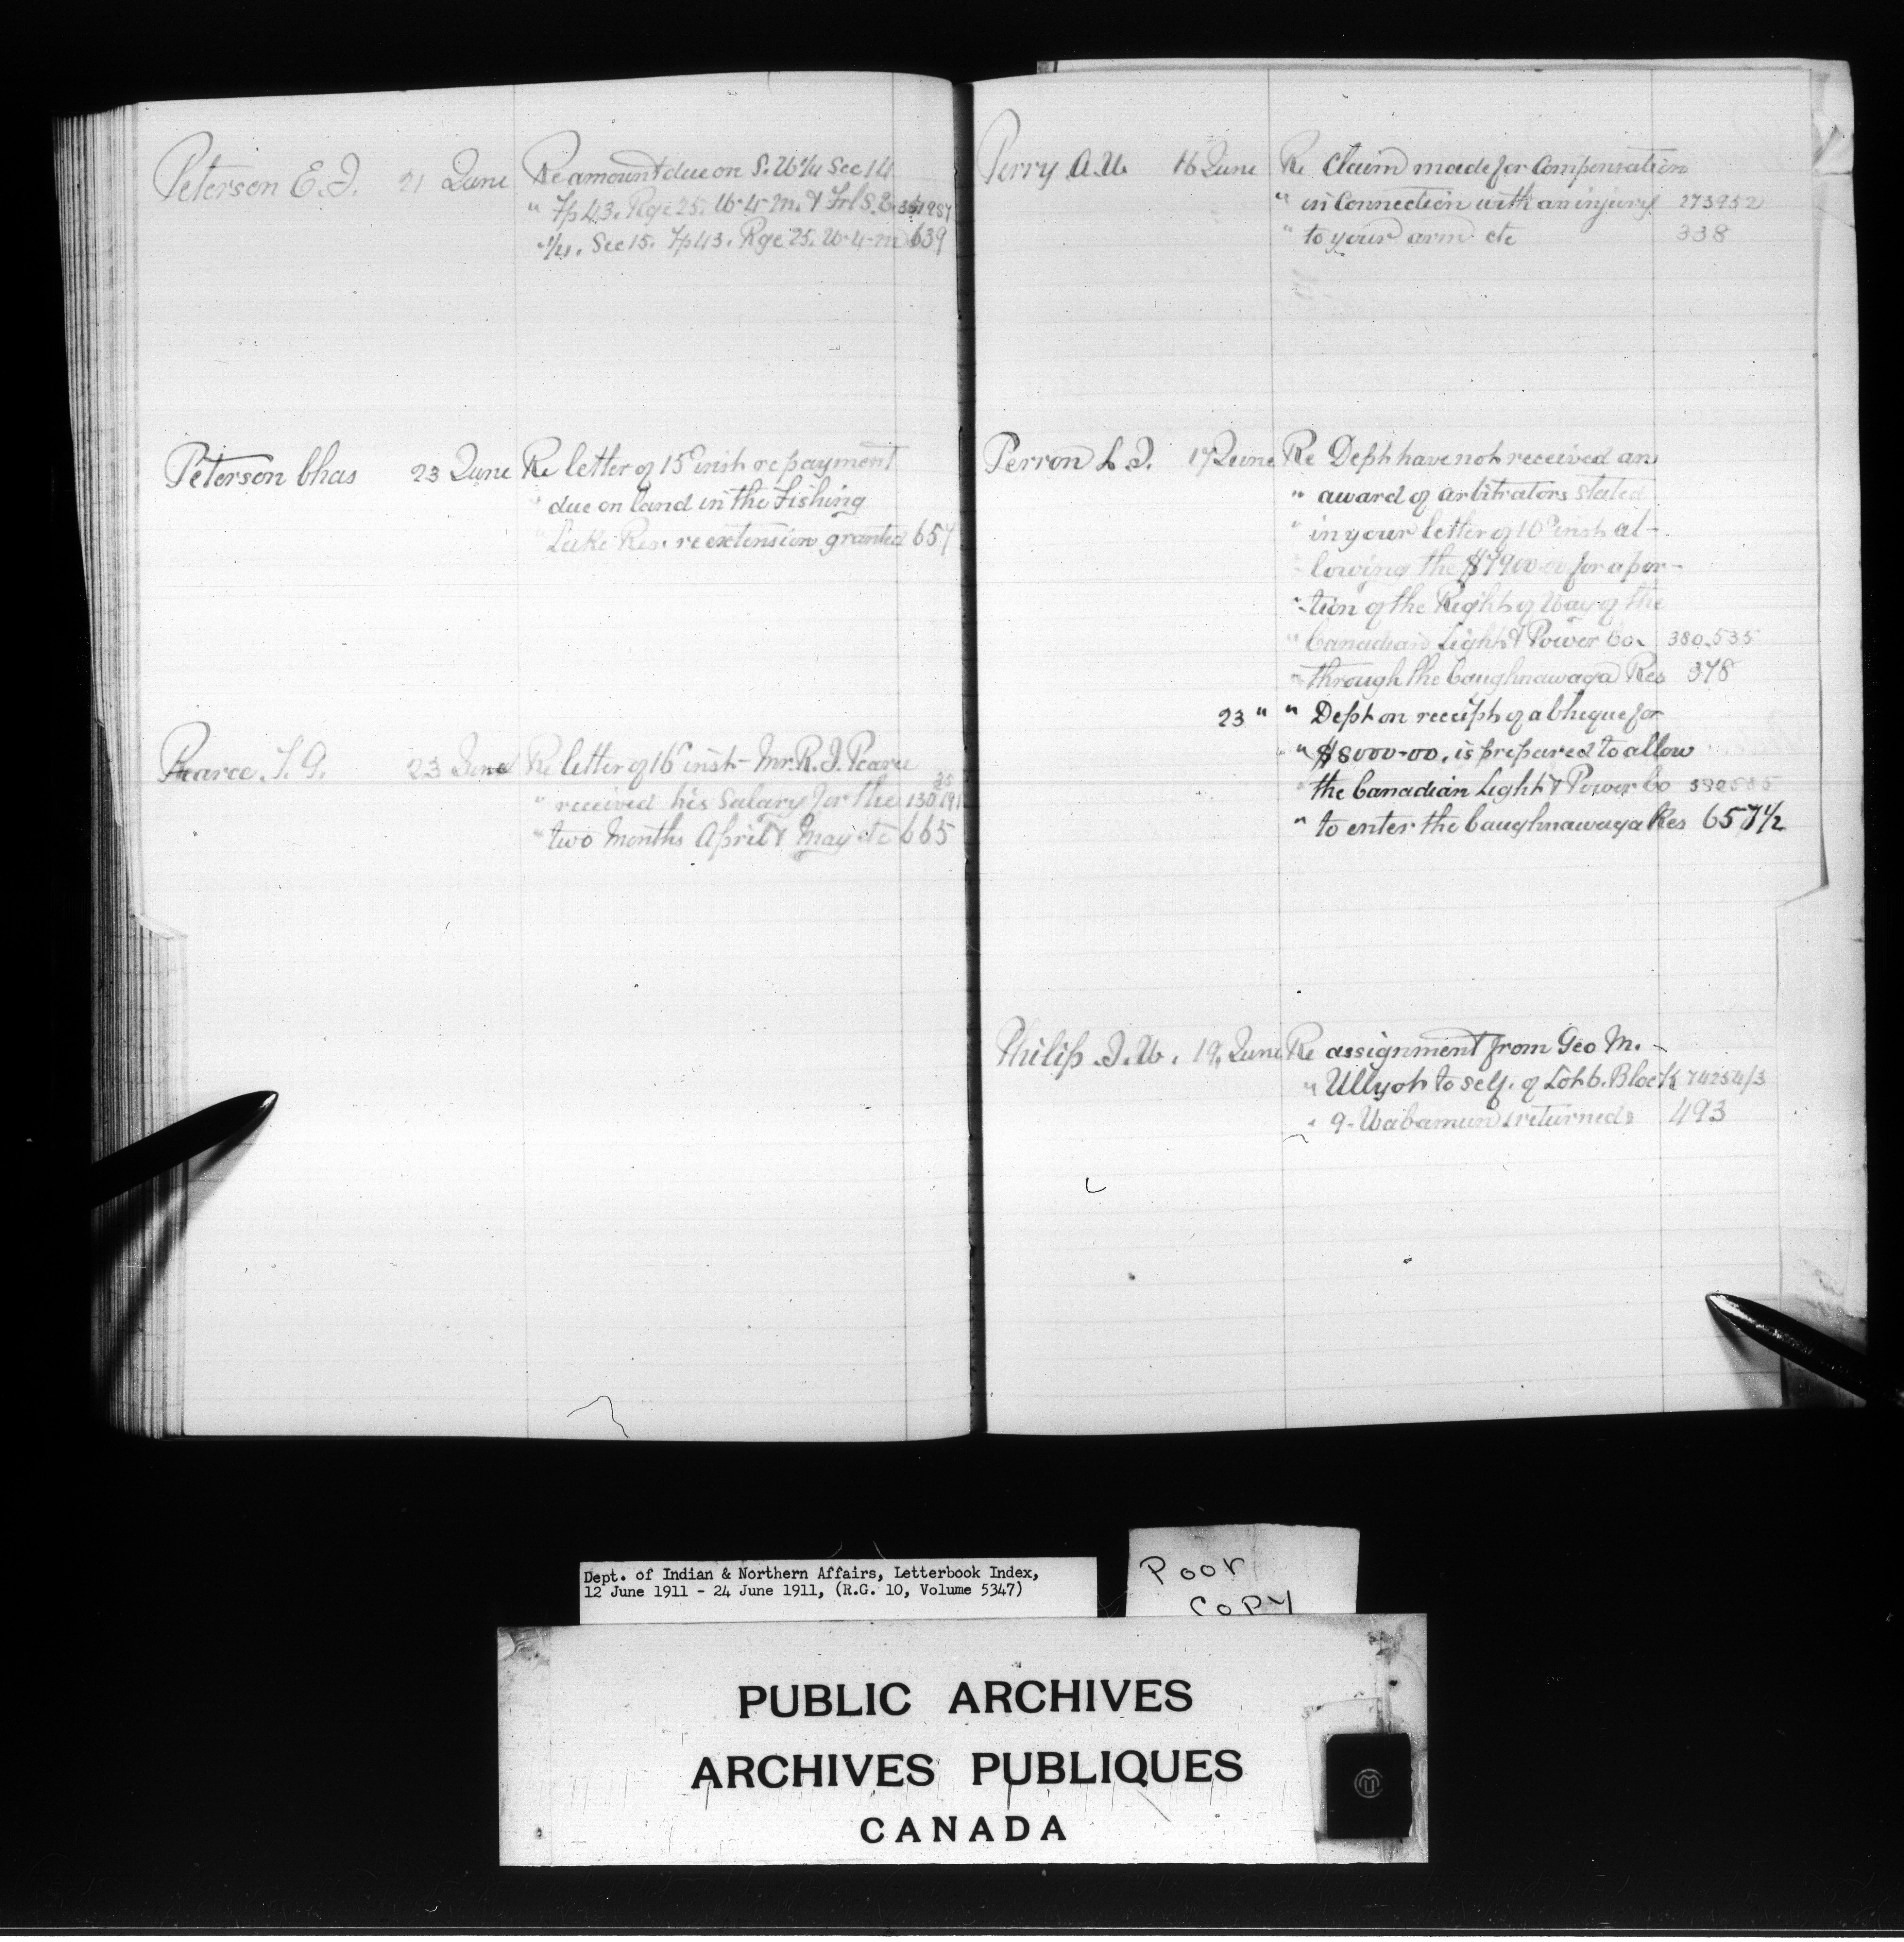 Peterson E. J. 21 June Re amount due on S. W 1/4 Sec 14
" Tp 43. Rge 25. W-4-m. & Frl S. E.
" 1/4. Sec 15. Tp 43. Rge 25. W-4-m 639
Peterson Chas 23 June Re letter of 15 inst re payment
" due on land in the Fishing
" Lake Res. re extension granted 657
Pearce 23 June Re letter of 16 inst - Mr. R. J. Pearce
" received his Salary for the
" two Months April & May etc 665
Perry A. W. 16 June Re Claim made for Compensation
" in Connection with an injury 273952
" to your arm etc 338
Perron L. J. 17 June Re Dept have not received an
" award of arbitrators stated
" in your letter of 10 inst al-
" lowing the $7900.00 for a por-
" tion of the Right of Way of the
" Canadian Light & Power Co. 380.535
" through the Caughnawaga Res 378
23 " " Dept on receipt of a Cheque for
" $8000-00. is prepared to allow
" the Canadian Light & Power Co 380535
" to enter the Caughnawaga Res 657 1/2
Philip J. W. 19, June Re assignment from Geo M. -
" Ullyot to self. of Lot 6. Block 74254/3
" 9- Wabamun returned 493
Dept. of Indian & Northern Affairs, Letterbook Index,
12 June 1911 - 24 June 1911, (R.G. 10, Volume 5347)
Poor
Copy
PUBLIC ARCHIVES
ARCHIVES PUBLIQUES
CANADA